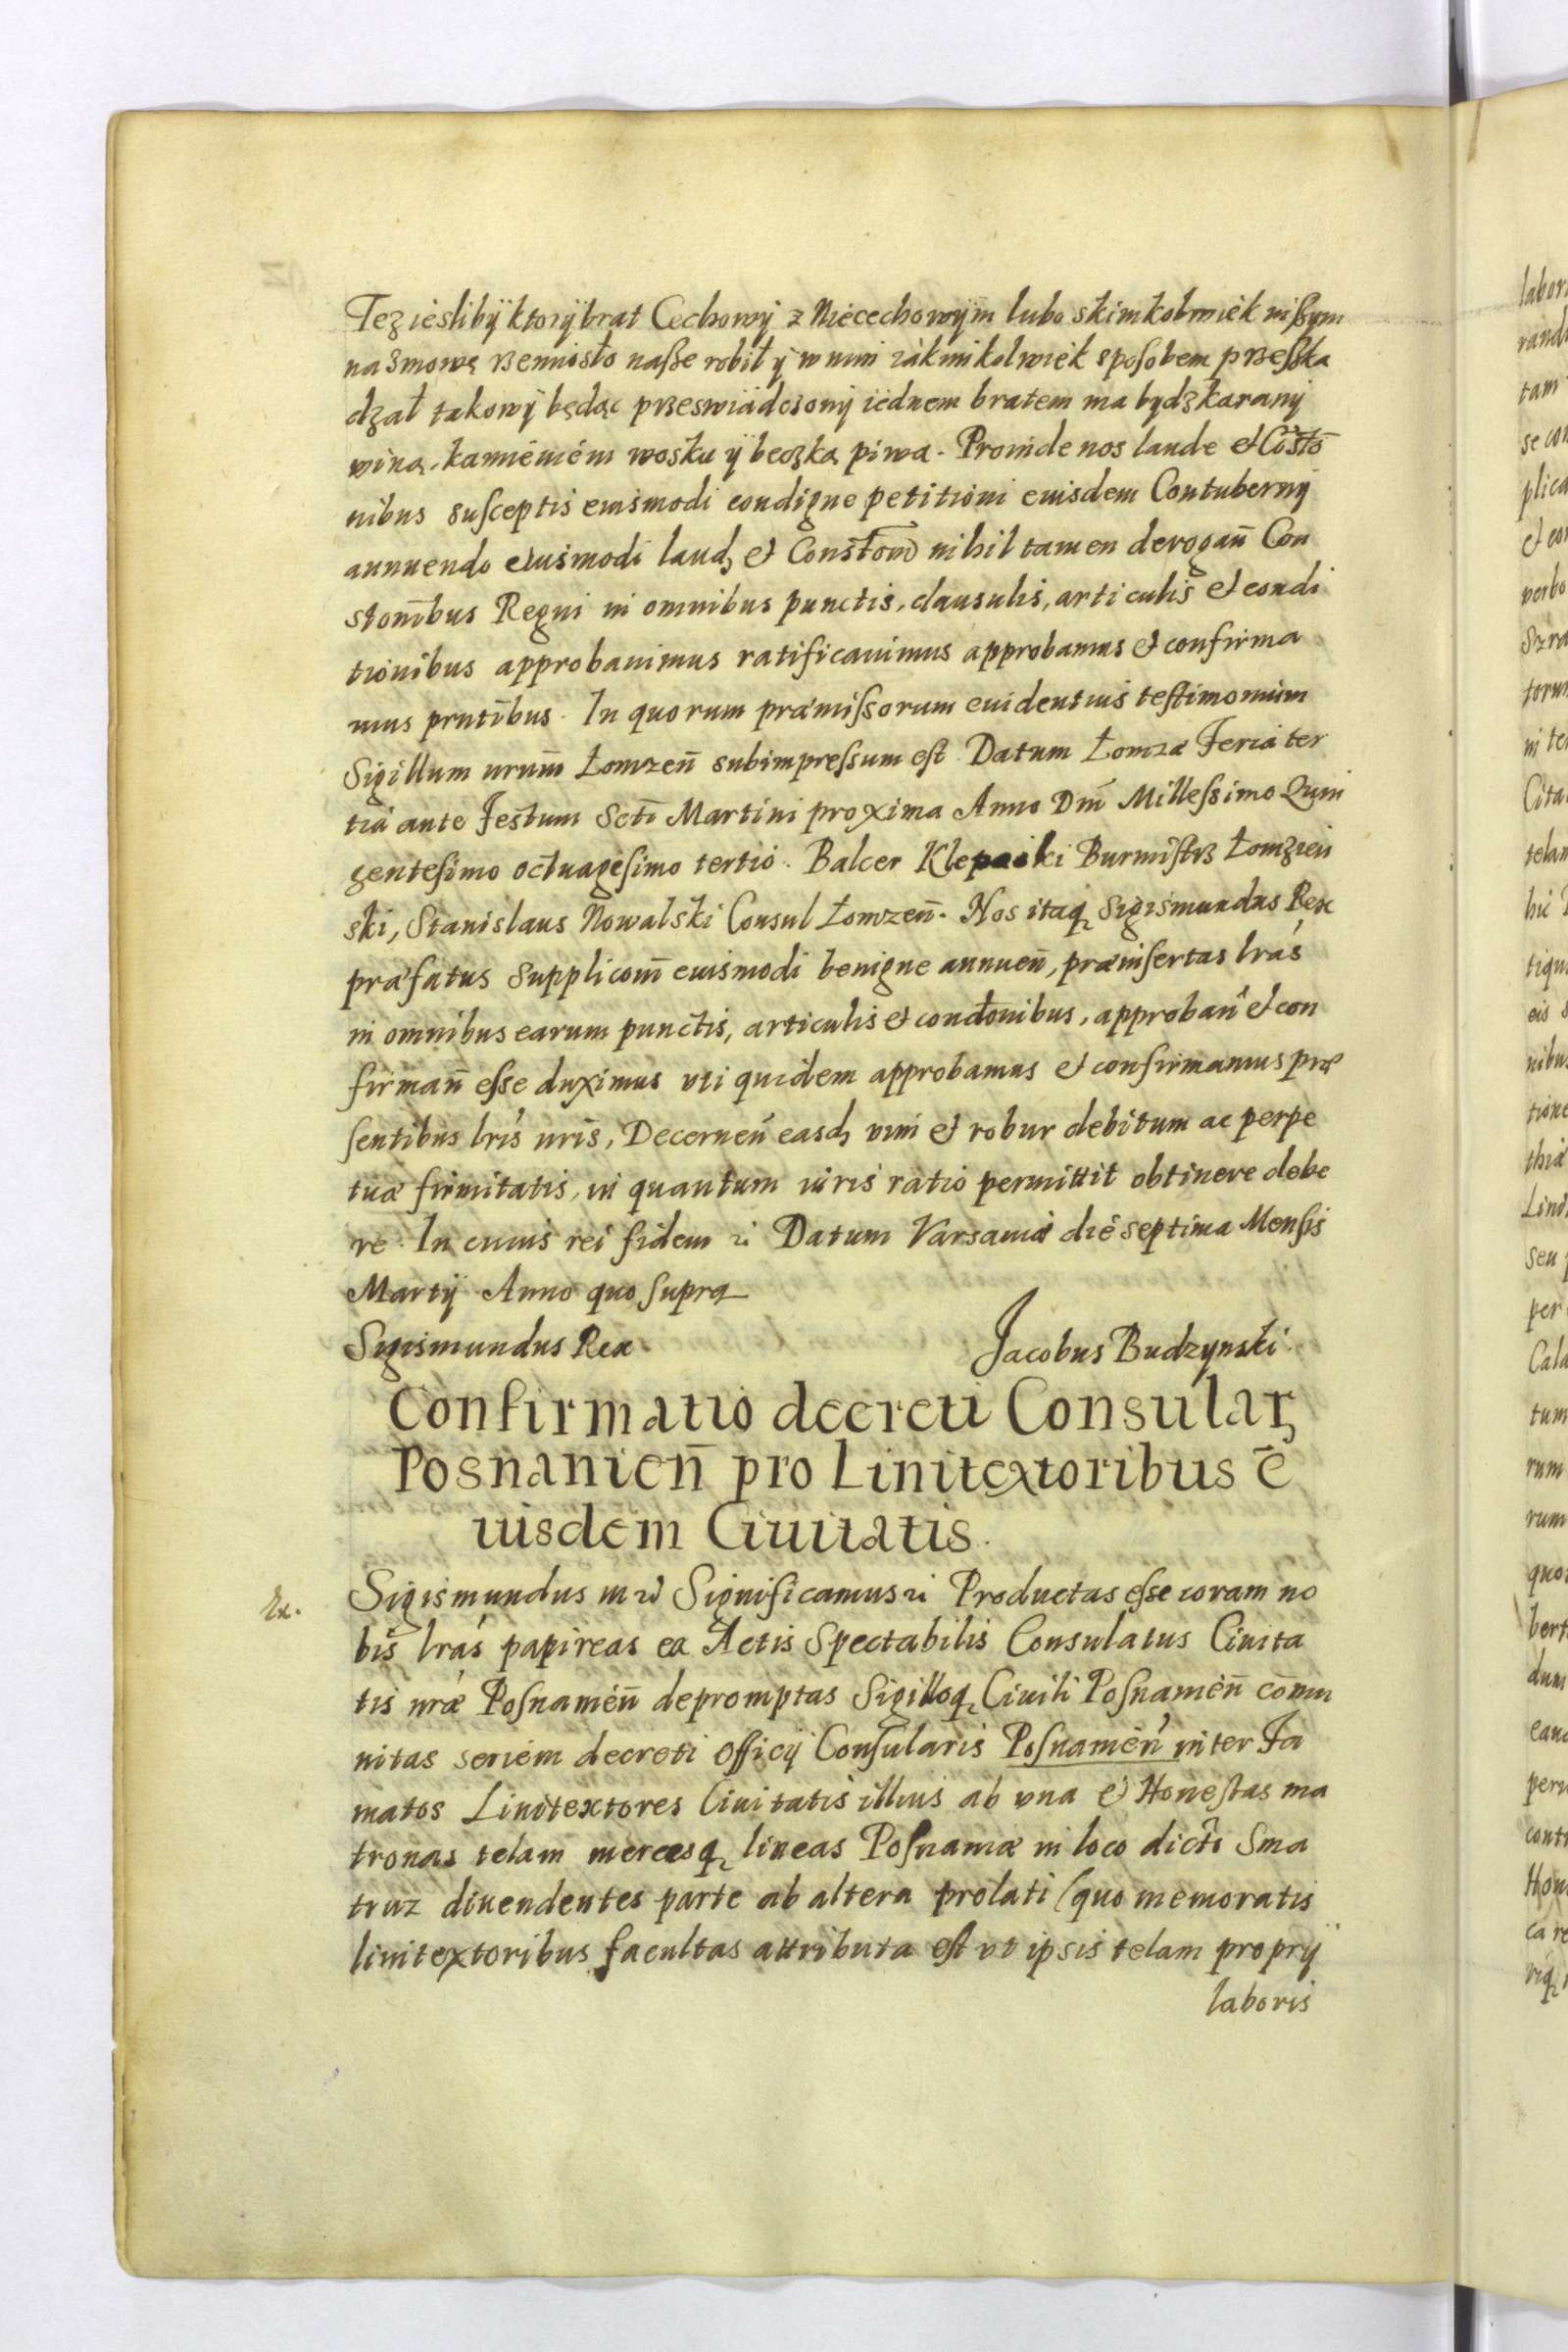 Tez iesliby ktory brat Cechowy z Niecechowym lubo skimkolwiek inszym
na zmowę rzemiosło nasze robił y w nim iakimkolwiek sposobem przeszka
dzał takowy będąc przeswiadczony iednem bratem ma bydz karany
winą. kamieniem wosku y beczką piwa. Proinde nos laude et Cōstō
nibus susceptis eiusmodi condigne petitioni eiusdem Contubernij
annuendo eiusmodi laudʒ et Constōm̄ nihil tamen derogan̄ Con
stom̄bus Regni in omnibus punctis, clausulis, articulis et condi
tionibus approbauimus ratificauimus approbamus et confirma
mus prntībus. In quorum præmissorum euidentius testimonium
Sigillum nrum̄ Łomzen̄ subimpressum est. Datum Łomzæ Feria ter
tia ante Festum Scti Martini proxima Anno Dnī Millessimo Quin
gentesimo octuagesimo tertio. Balcer Klepacki Burmistrz Łomzien
ski, Stanislaus Nowalski Consul Łomzen̄. Nos itaq Sigismundus Rex
præfatus supplicom̄ eiusmodi benigne annuen̄, præinsertas lrás
in omnibus earum punctis, articulis et condōnibus, approban̄ et con
firman̄ esse duximus vti quidem approbamus et confirmamus præ
sentibus lris nris, Decernen̄ easdʒ vim et robur debitum ac perpe
tuæ firmitatis, in quantum iuris ratio permittit obtinere debe
re. In cuius rei fidem ꝛc Datum Varsauiæ die septima Mensis
Martij Anno quo supra
Sigismundus Rex Jacobus Budzynski
Confirmatio decreti Consularʒ
Posnanien̄ pro Linitextoribus e
iusdem Ciuitatis.
Ex. Sigismundus III ꝛc Significamus ꝛc Productas esse coram no
bis lrás papireas ex Actis Spectabilis Consulatus Ciuita
tis nræ Posnanien̄ depromptas Sigilloq Ciuili Posnanien̄ com̄u
nitas seriem decreti officij Consularis Posnanien̄ inter Fa
matos Linitextores Ciuitatis illius ab vna et Honestas ma
tronas telam mercesq lineas Posnaniæ in loco dicto Sma
truz diuendentes parte ab altera prolati (quo memoratis
linitextoribus facultas attributa est vt ipsis telam proprij
laboris